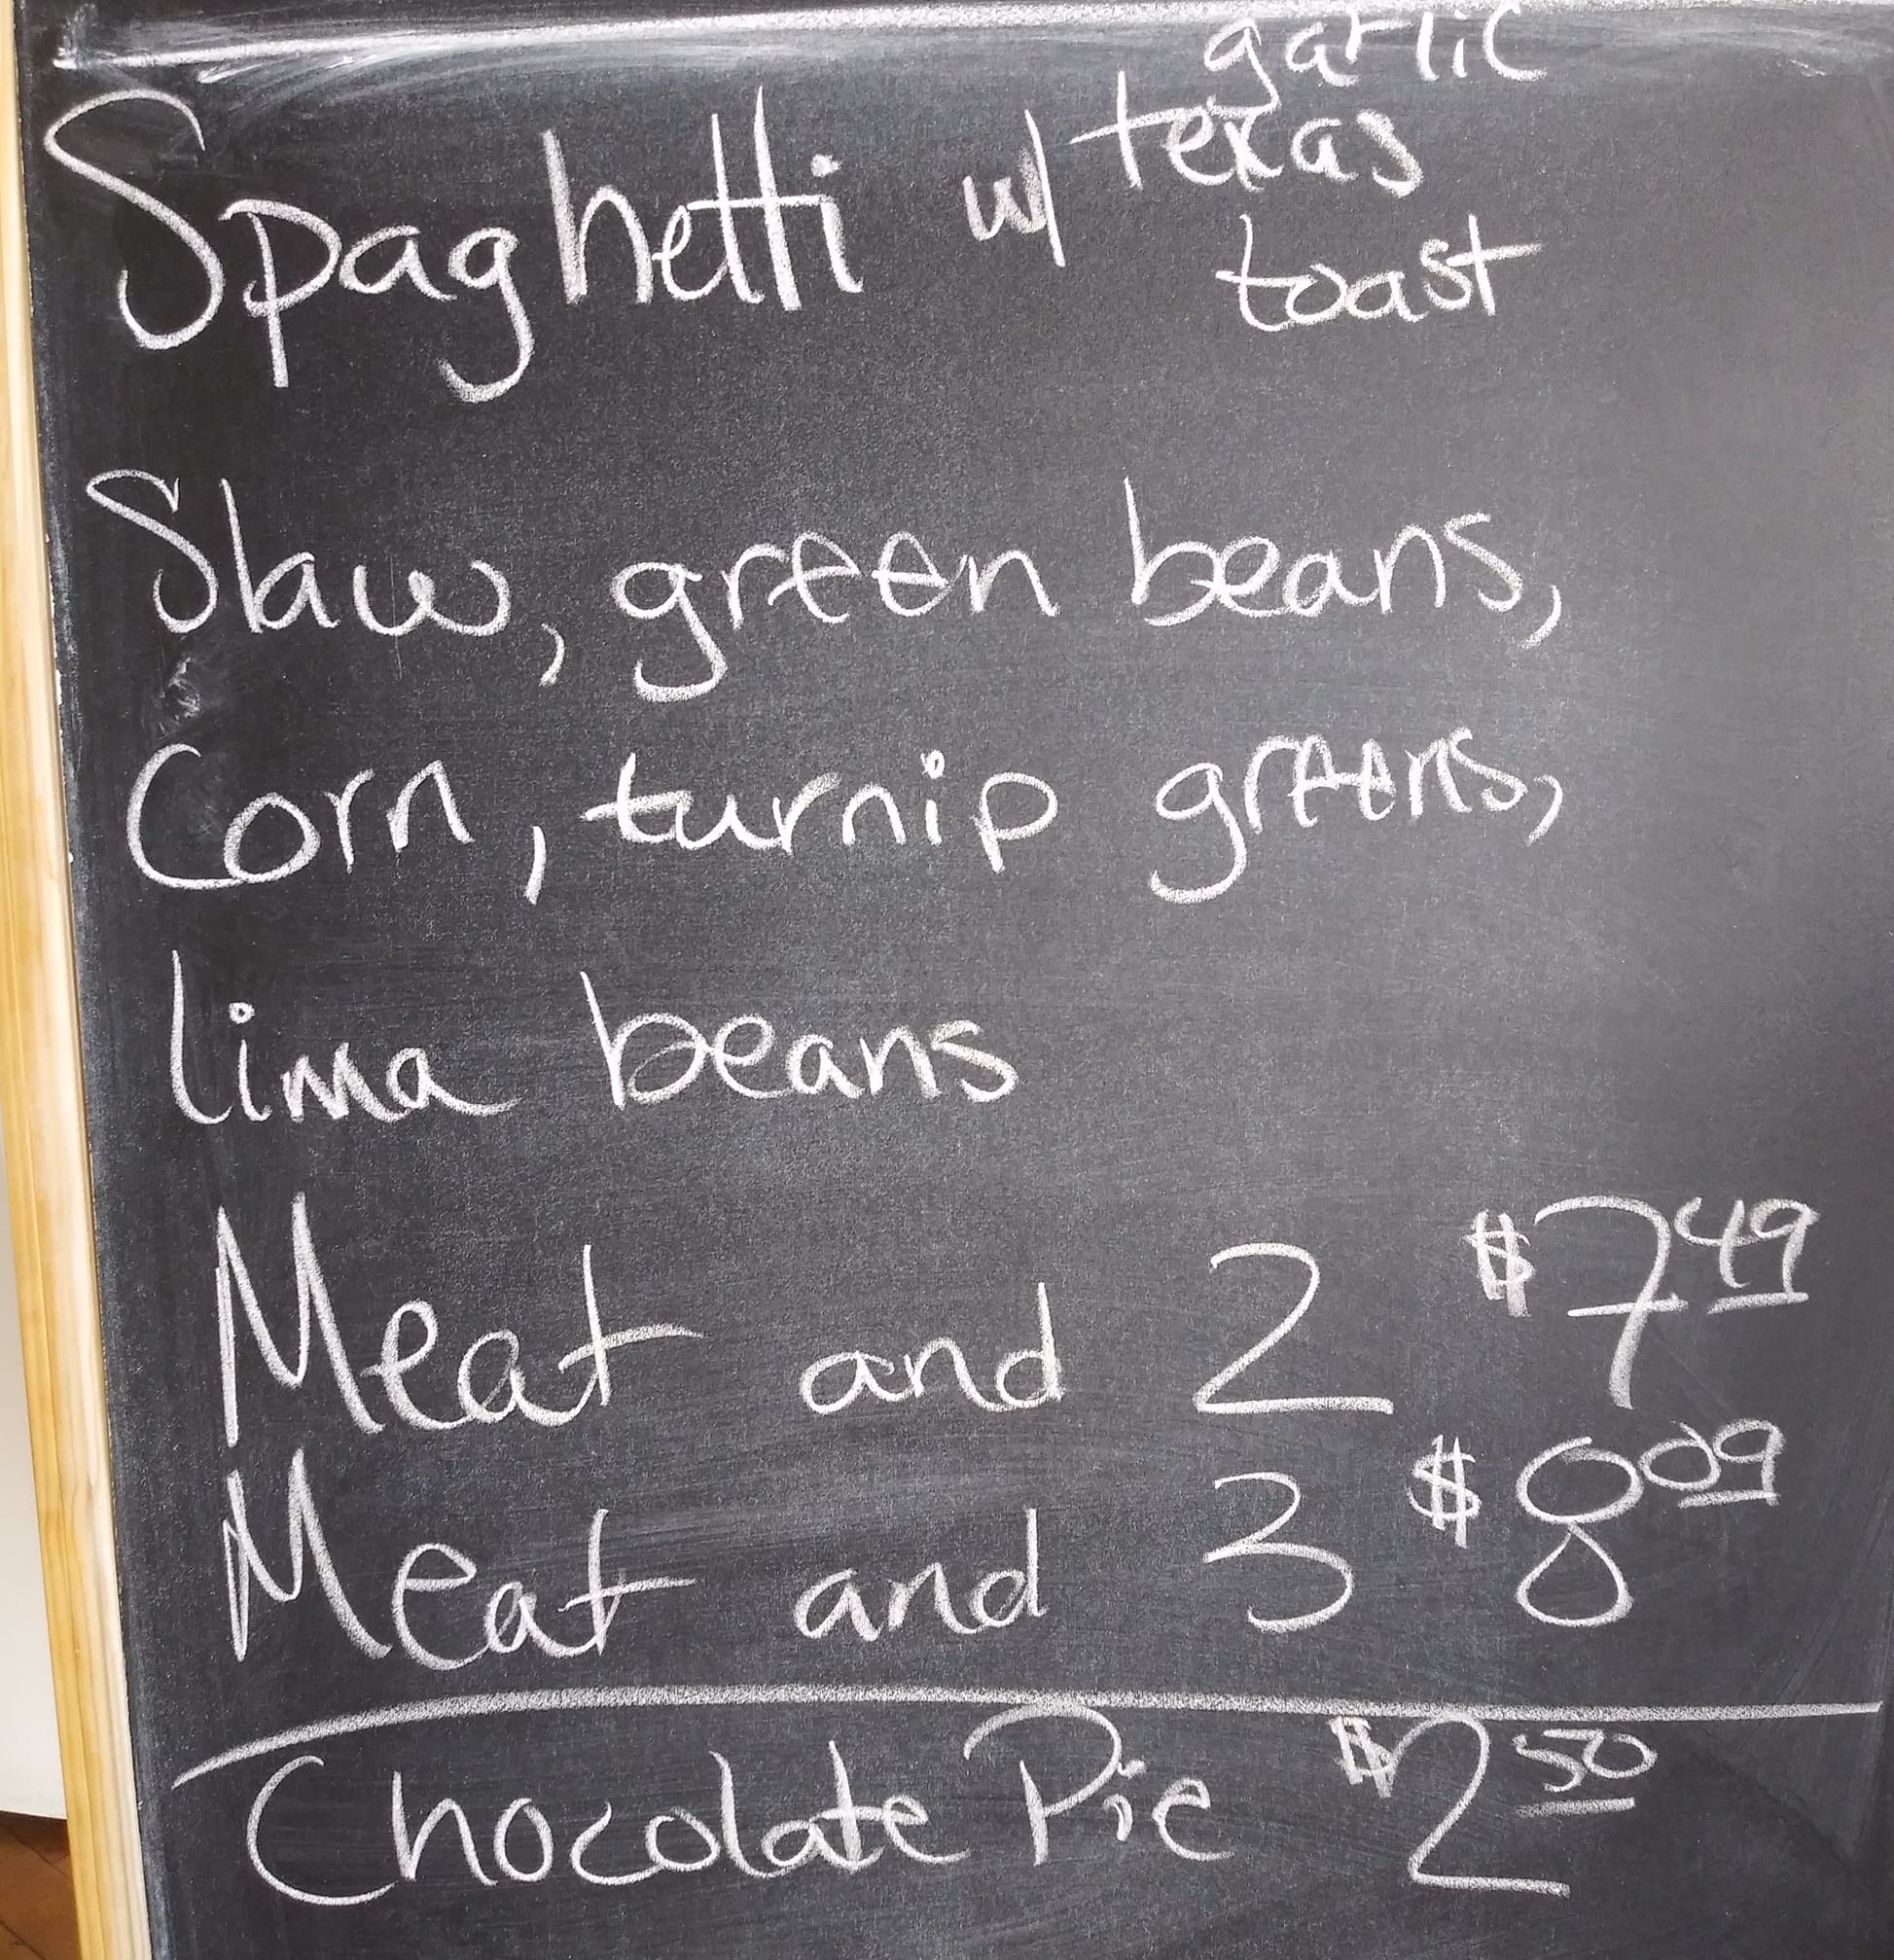 Spaghetti w/ garlic texas toast
Slaw, green beans,
Corn, turnip greens,
lima beans
Meat and 2 $7.49
Meat and 3 $8.09
Chocolate Pie $2.50